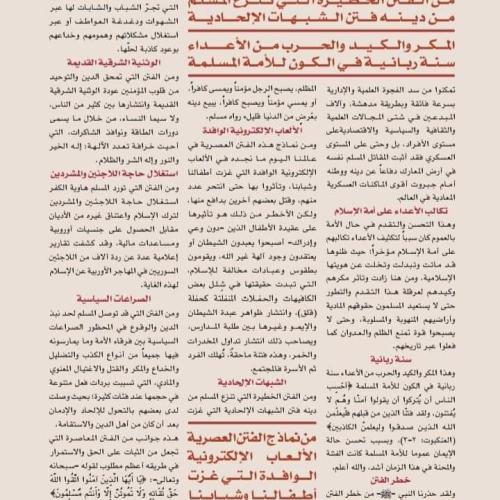 من الفتن الخطيرة التي تنزع المسلم
من دينه فتن الشبهات الإلحادية
المكر والكيد والحرب من الأعداء
سنة ربانية في الكون للأمة المسلمة
تمكنوا من سد الفجوة العلمية والإدارية
بسرعة فائقة وبطريقة مدهشة، وآلاف
المبدعين في شتى المجالات العلمية
والثقافية والسياسية والاقتصادية على
مستوى الأفراد، بل وحتى على المستوى
العسكري فقد أثبت المقاتل المسلم نفسه
في أرض المعارك دفاعاً عن دينه ووطنه
أمام جبروت أقوى الماكنات العسكرية
المعادية في العالم.
تكالب الأعداء على أمة الإسلام
وهذا التحسن والتقدم في حال الأمة
بالعموم كان سبباً لتكثيف الأعداء تكالبهم
على أمة الإسلام مؤخراً؛ حيث ظنوها
قد ماتت وتبدلت وتخلت عن هويتها
الإسلامية، ومن هنا زادت مكرهم
وكيدهم لعرقلة هذا التقدم والتطور
حتى لا يستعيد المسلمون حقوقهم المادية
وأراضيهم المنهوبة والمسلوبة، وحتى لا
يصبحوا قوة تمنع الظلم والعدوان كما
فعلوا عبر تاريخهم.
سنة ربانية
وهذا المكر والكيد والحرب من الأعداء سنة
ربانية في الكون للأمة المسلمة ﴿أحسب
الناس أن يُتركوا أن يقولوا آمنا وهُم لا
يُفتنون، ولقد فتنّا الذين من قبلهم فليعلمن
الله الذين صدقوا وليعلمنّ الكاذبين﴾
(العنكبوت: ٢-٣)، وبسبب تحسن حالة
الإيمان عموما للأمة المسلمة كانت الفتنة
شديدة في هذا الزمان أشد، والله أعلم.
خطر الفتن
ولقد حذرنا النبي -ﷺ- من خطر
المظلم، يصبح الرجل مؤمناً ويمسي كافراً،
أو يمسي مؤمناً ويصبح كافراً، يبيع دينه
بعرض من الدنيا قليل» رواه مسلم.
الألعاب الإلكترونية الوافدة
ومن نماذج هذه الفتن العصرية في
عالمنا اليوم ما نجده في الألعاب
الإلكترونية الوافدة التي غزت أطفالنا
وشبابنا، وتأثروا بها حتى انتحر عدد
منهم، وقتل بعضهم آخرين بدافع منها،
ولكن الأخطر من ذلك هو تأثيرها
على عقيدة الأطفال الذين -دون وعي
وإدراك- أصبحوا يعبدون الشيطان أو
يعتقدون وجود آلهة غير الله، ويقومون
بطقوس وعبادات مخالفة للإسلام،
التي تبدت حقيقتها في شلل بعض
الكافيهات والحفلات المنفلتة كحفلة
(قلق)، وانتشار ظواهر عبدة الشيطان
والإيمو وغيرها بين طلبة المدارس،
ويصاحب ذلك انتشار تداول المخدرات
والخمر، وهذه فتنة ماحقة، تُهلك الفرد
ثم الأسرة فالمجتمع.
الشبهات الإلحادية
ومن الفتن الخطيرة التي تنزع المسلم من
دينه فتن الشبهات الإلحادية التي غزت
من نماذج الفتن العصرية
الألعاب الإلكترونية
الوافدة التي غزت
أطفالنا وشبابنا
التي تجرّ الشباب والشابات لها عبر
الشهوات ودغدغة العواطف أو عبر
استغلال مشكلاتهم وهمومهم وخداعهم
بوعود كاذبة لحلّها.
الوثنية الشرقية القديمة
ومن الفتن التي تمحق الدين والتوحيد
من قلوب المؤمنين عودة الوثنية الشرقية
القديمة وانتشارها بين كثير من الناس،
ولا سيما النساء، من خلال ما يسمى
دورات الطاقة ونوافذ الشاكرات، التي
أحيت خرافة تعدد الآلهة: إله الخير
والنور وإله الشر والظلام.
استغلال حاجة اللاجئين والمشردين
ومن الفتن التي تورد المسلم هاوية الكفر
استغلال حاجة اللاجئين والمشردين
لترك الإسلام واعتناق غيره من الأديان
مقابل الحصول على جنسيات أوروبية
ومساعدات مالية، وقد كشفت تقارير
إعلامية عدة عن ردة آلاف من الإخوة
السوريين في المهاجر الأوربية عن الإسلام
لهذه الغاية.
الصراعات السياسية
ومن الفتن التي قد توصل المسلم لحد نبذ
الدين والوقوع في المحظور الصراعات
السياسية بين فرقاء الأمة وما يمارسونه
فيها جميعاً من أنواع الكذب والتضليل
والخداع والمكر والقتل والاغتيال المعنوي
والمادي، التي تسببت بردات فعل متنوعة
في حجمها عند فئات كثيرة؛ بحيث وصلت
لدى بعضهم بالتحول للإلحاد والإدمان
بعد أن كان من أهل الدين والاستقامة.
هذه جوانب من الفتن المعاصرة التي
تجعل من الثبات على الحق والاستمرار
في طريقه أعظم مطلوب لقوله -سبحانه
وتعالى-: ﴿يَا أَيُّهَا الَّذِينَ آمَنُوا اتَّقُوا اللَّهَ
حَقَّ تُقَاتِهِ وَلَا تَمُوتُنَّ إِلَّا وَأَنتُم مُّسْلِمُونَ﴾